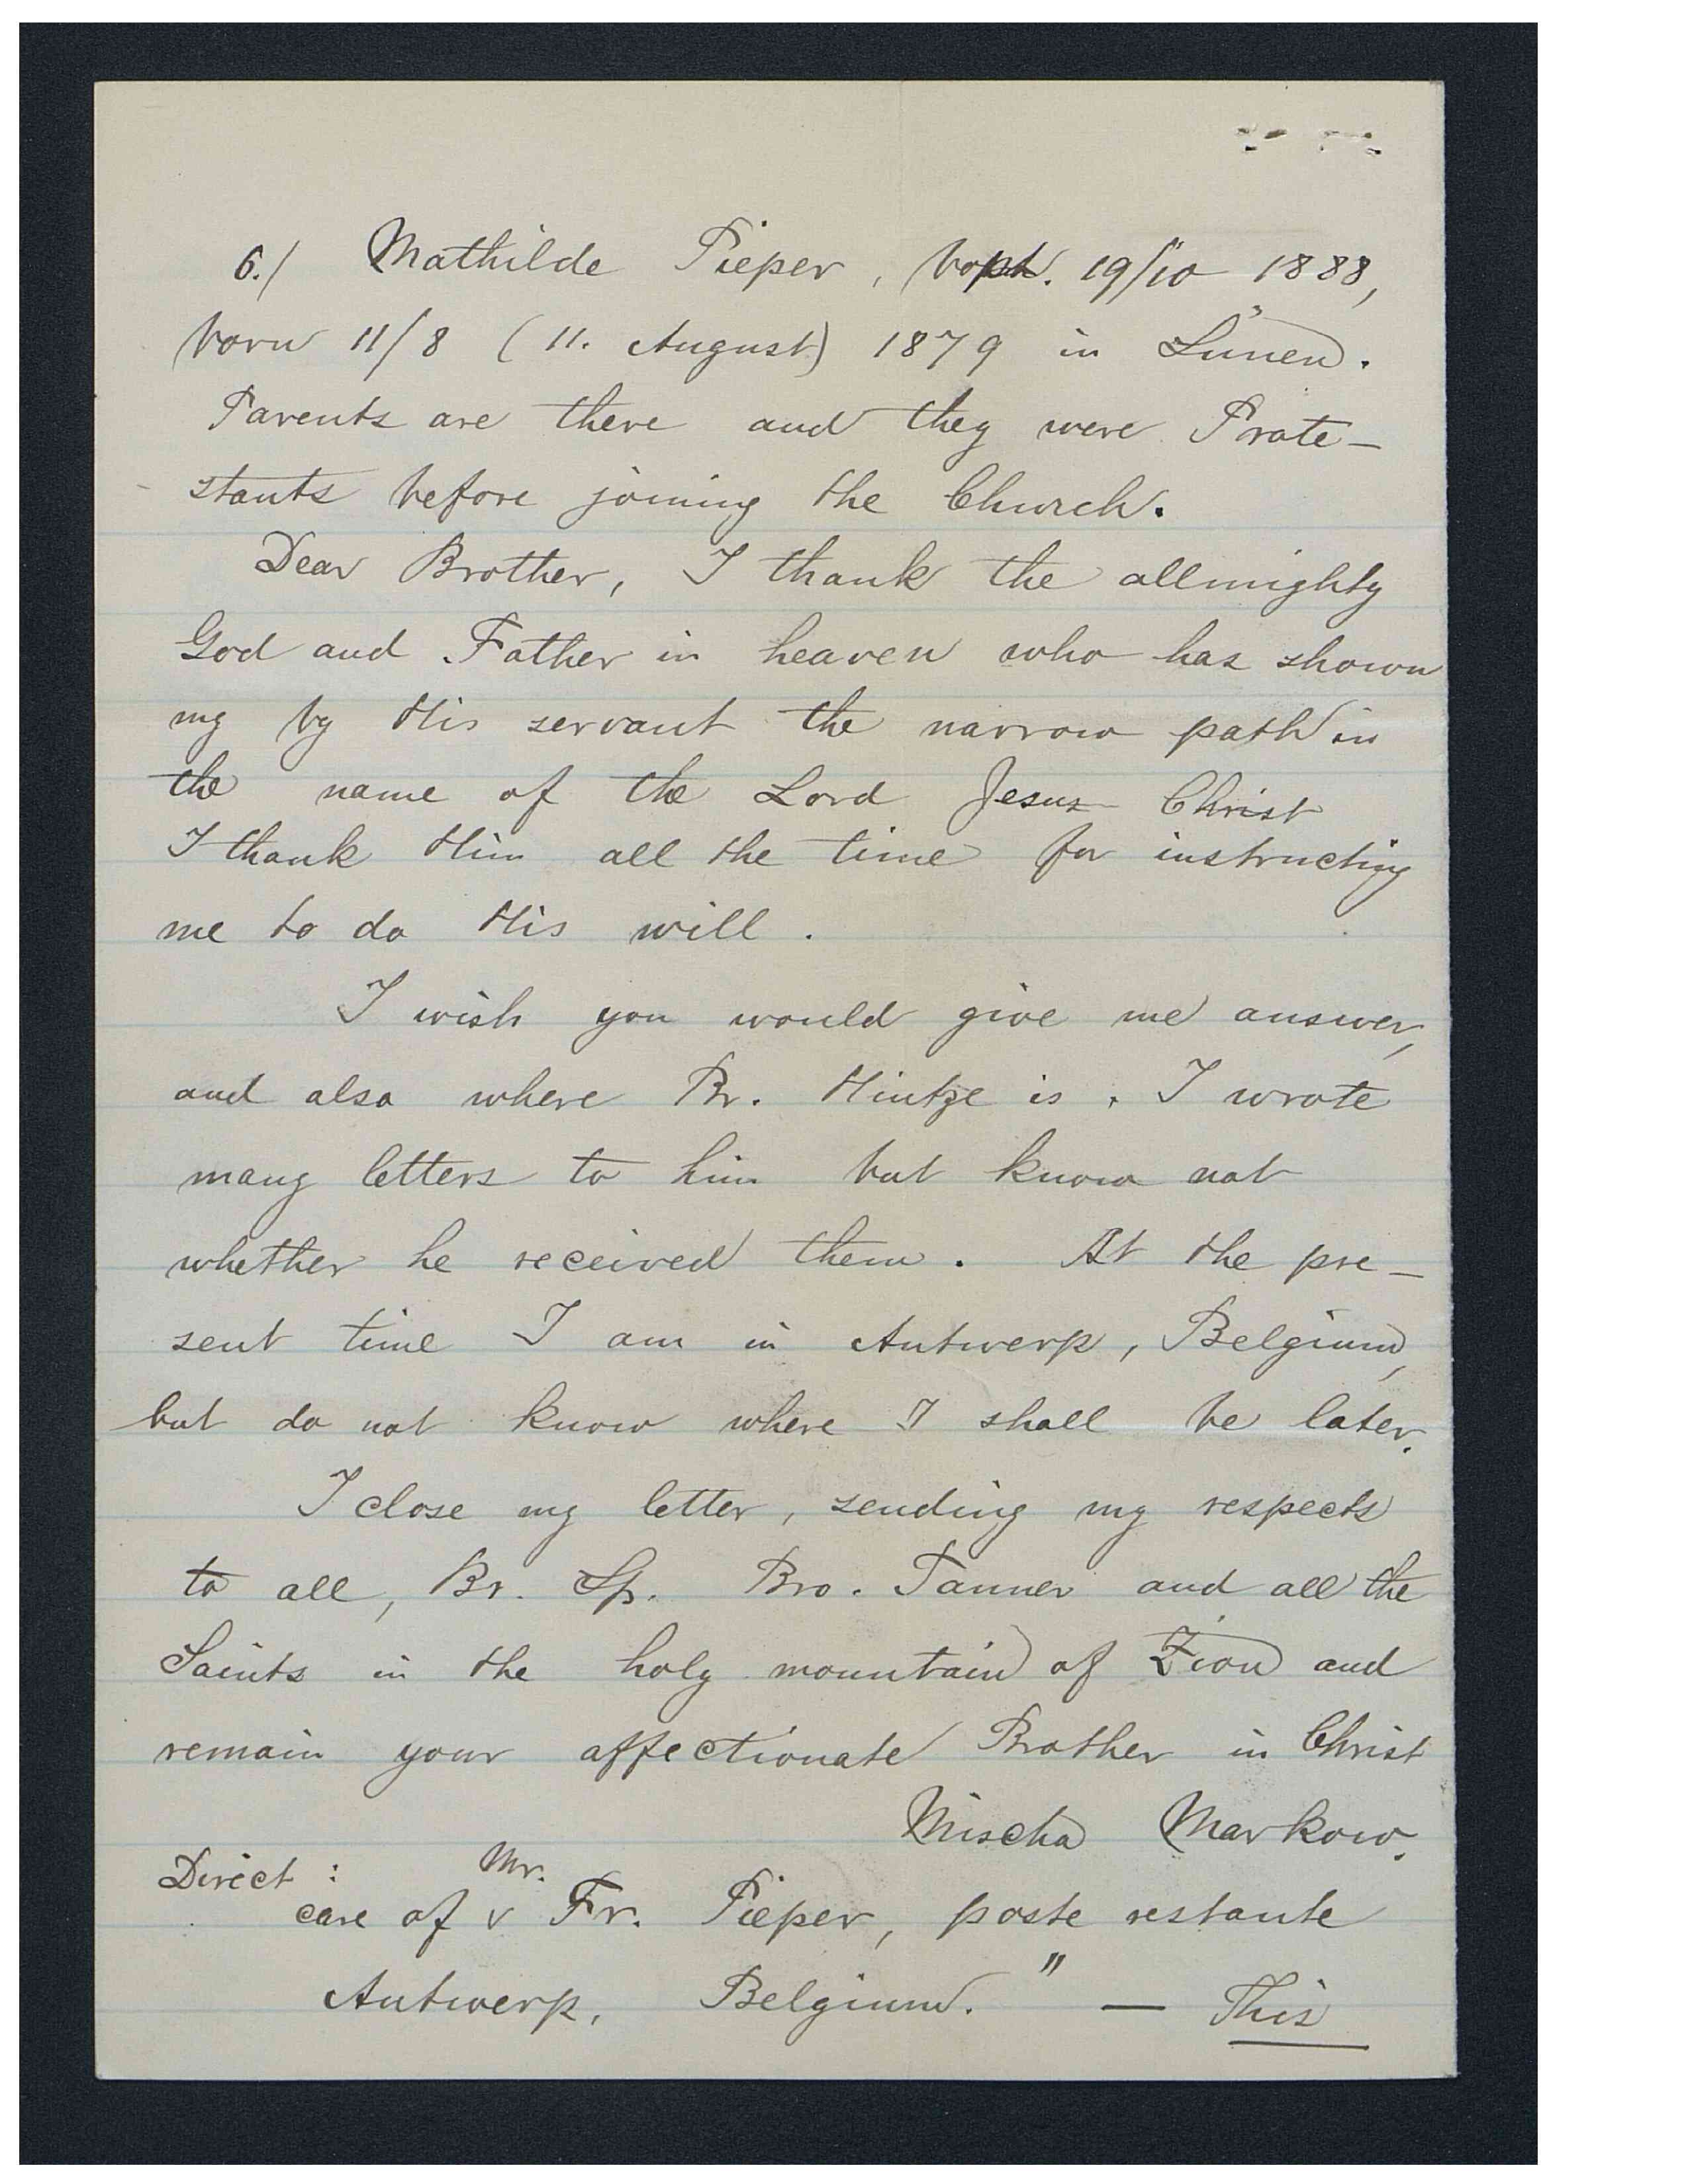 6./ Mathilde Pieper, bapt. 19/10 1888,
born 11/8 (11. August) 1879 in Lünen.
Parents are there and they were Prote-
stants before joining the Church.
Dear Brother, I thank the allmighty
God and Father in heaven who has shown
my by His servant the narrow path in
the name of the Lord Jesus Christ
I thank Him all the time for instructing
me to do His will.
I wish you would give me answer,
and also where Br. Hintze is. I wrote
many letters to him but know not
whether he received them. At the pre-
sent time I am in Antwerp, Belgium,
but do not know where I shall be later.
I close my letter, sending my respects
to all, Br. Sp. Bro. Tanner and all the
Saints in the holy mountain of Zion and
remain your affectionate Brother in Christ
Mischa Markow.
Direct : Mr.
care of v Fr. Pieper, poste restante
Antwerp, Belgium." — This